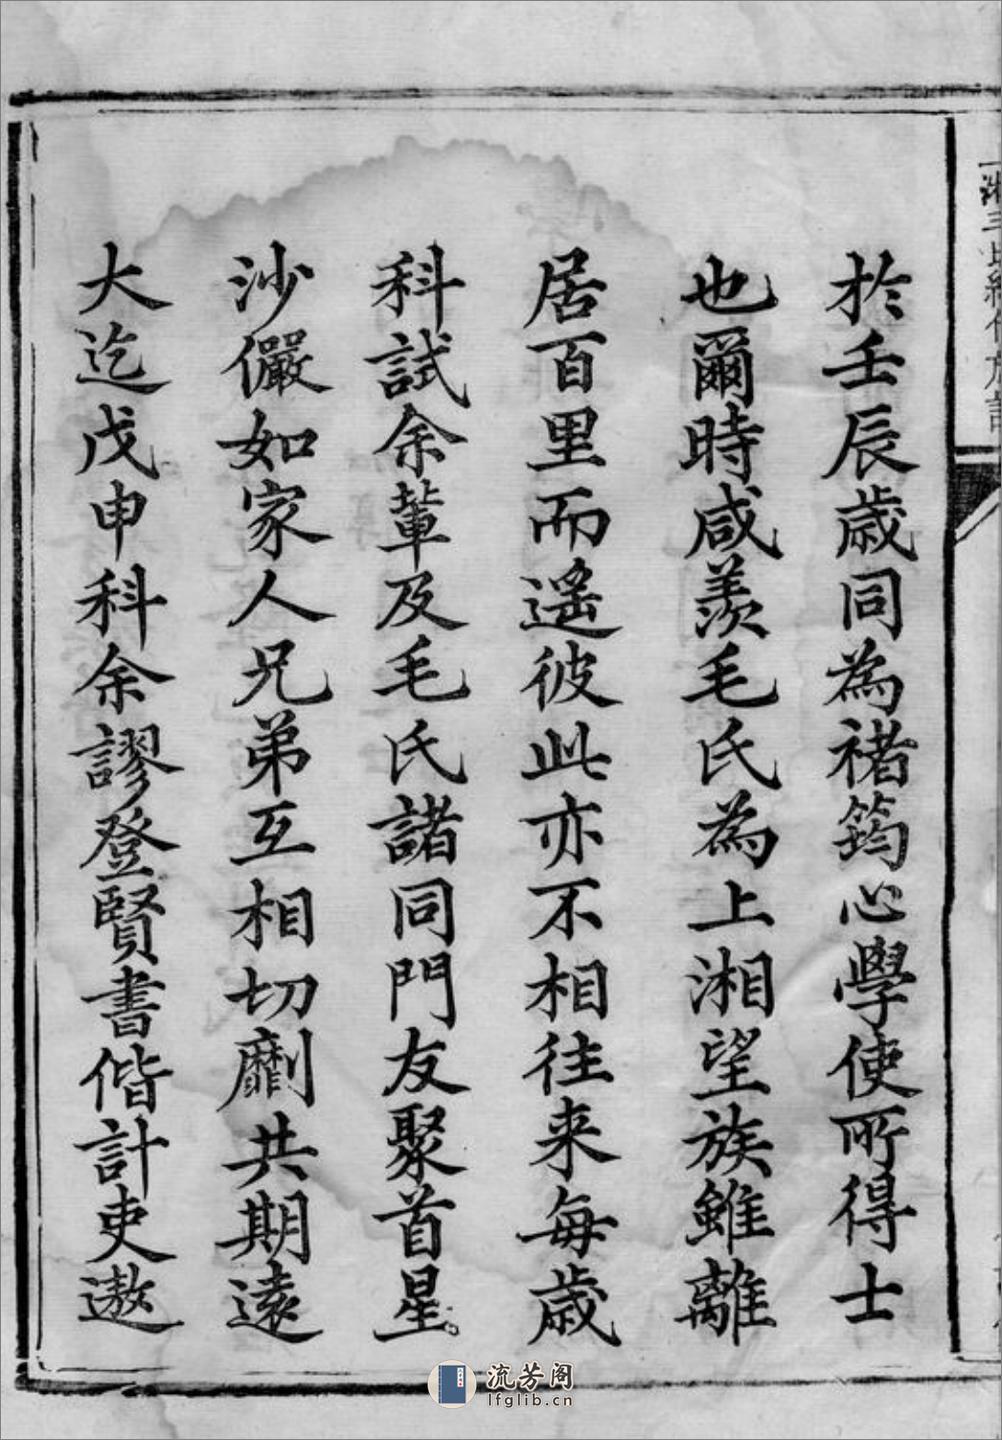 於壬辰歲同為褚筠心學使所得士
也爾時咸羨毛氏為上湘望族雖離
居百里而遙彼此亦不相往来每歲
科試余輩及毛氏諸同門友聚首星
沙儼如家人兄弟互相切劘共期遠
大迄戊申科余謬登賢書偕計吏遨
流芳阁
lfglib.cn